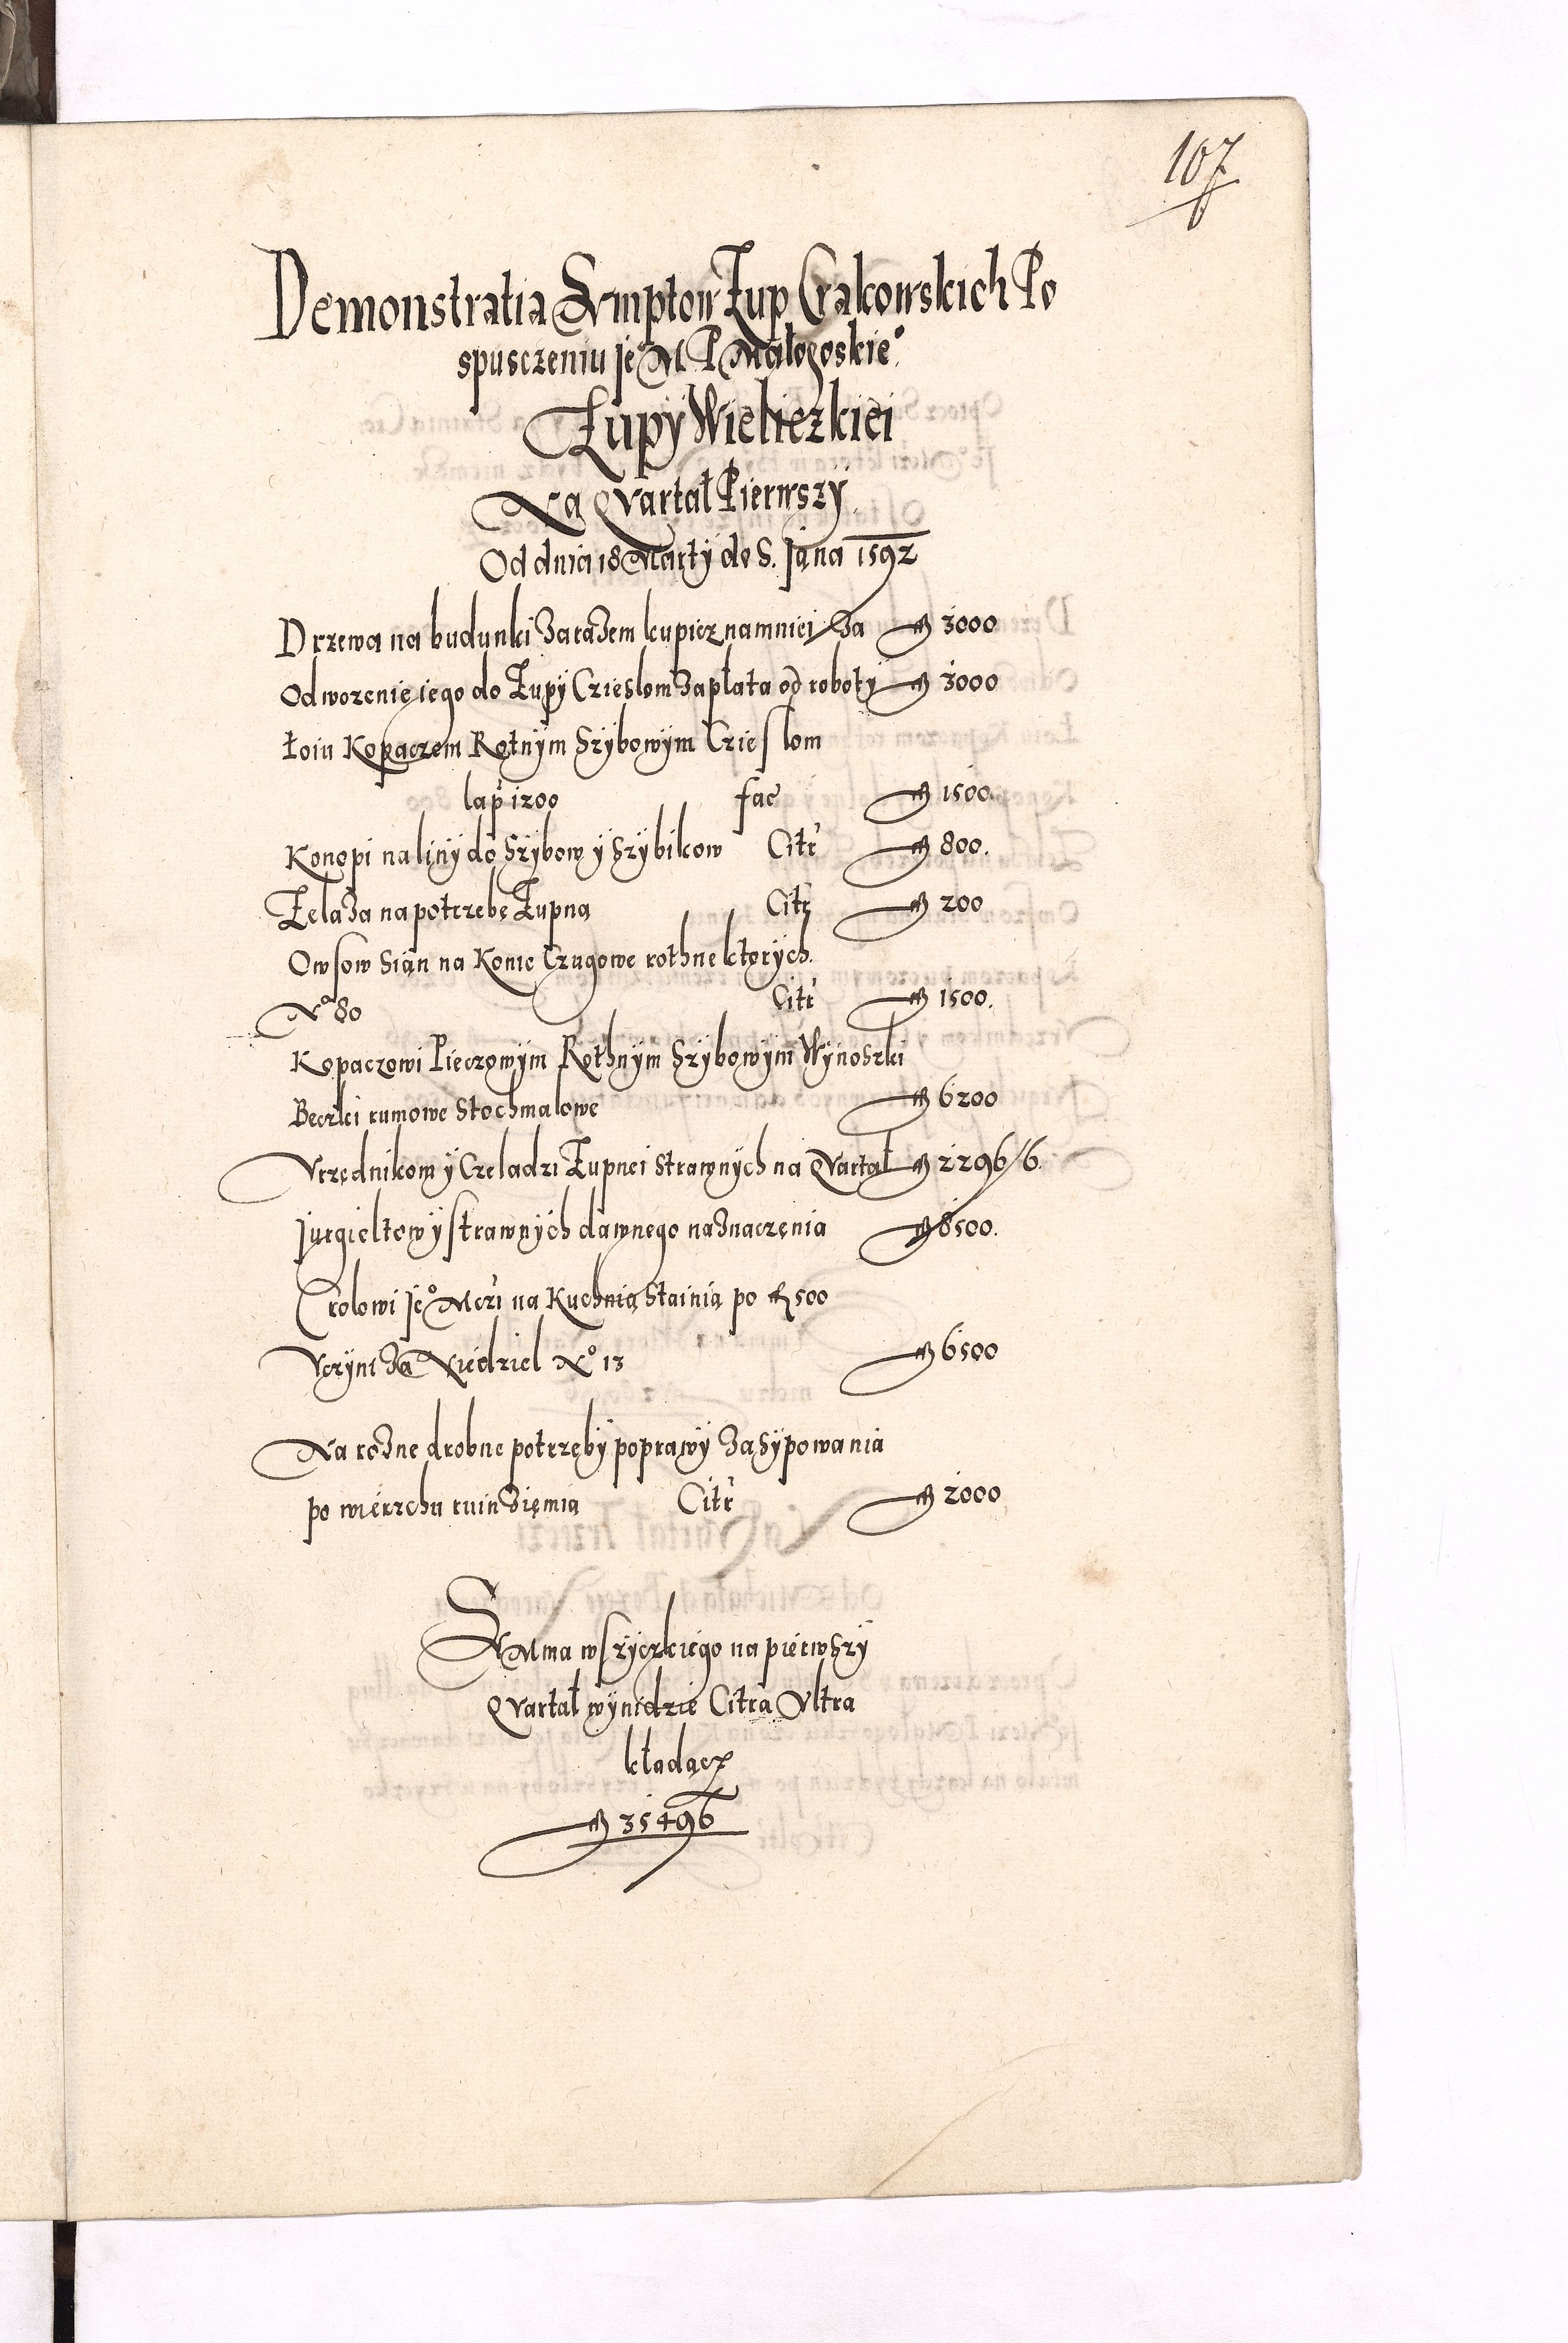 107
Demonstratia Sumptow Żup Crakowskich Po
spusczeniu je° M P Małogoskie°.
Żupy Wieliczkiei
Na Qvartał Pierwszÿ.
Od dnia 18 Martÿ do S. Jana 1592
Drzewa na budunki Zarazem kupicz namniei Za 3000
Od wozenię iego do Żupÿ Czieslom Zapłata od robotÿ 3000
Łoiu Kopaczem Rotnÿm Szÿbowÿm Czieslom
lap 1200 fac 1500.
Konopi na linÿ do Szÿbow ÿ Szÿbikow Citr 800.
Żelaza na potrzebę Żupną Citr 200
Owsow Sian na Konie Czugowe rothne ktorÿch.
N° 80 Citr 1500.
Kopaczowi Pieczowÿm Rothnÿm Szÿbowÿm Wÿnoszki
Beczki rumowe Stochmalowe 6200
Vrzędnikom ÿ Czeladzi Żupnei strawnÿch na Qvartał 2296/6.
Jurgieltow ÿ strawnÿch dawnego naznaczenia 8500.
Crolowi je° Mczi na Kuchnią Stainią po 500
Vczÿni Za Niedziel N° 13 6500
Na rozne drobne potrzebÿ poprawÿ Zasÿpowania
po wierzchu ruin Ziemią Citr 2000
Summa wszÿczkiego na pierwszÿ
Qvartał wÿnidzie Citra Vltra
kładącz
35496